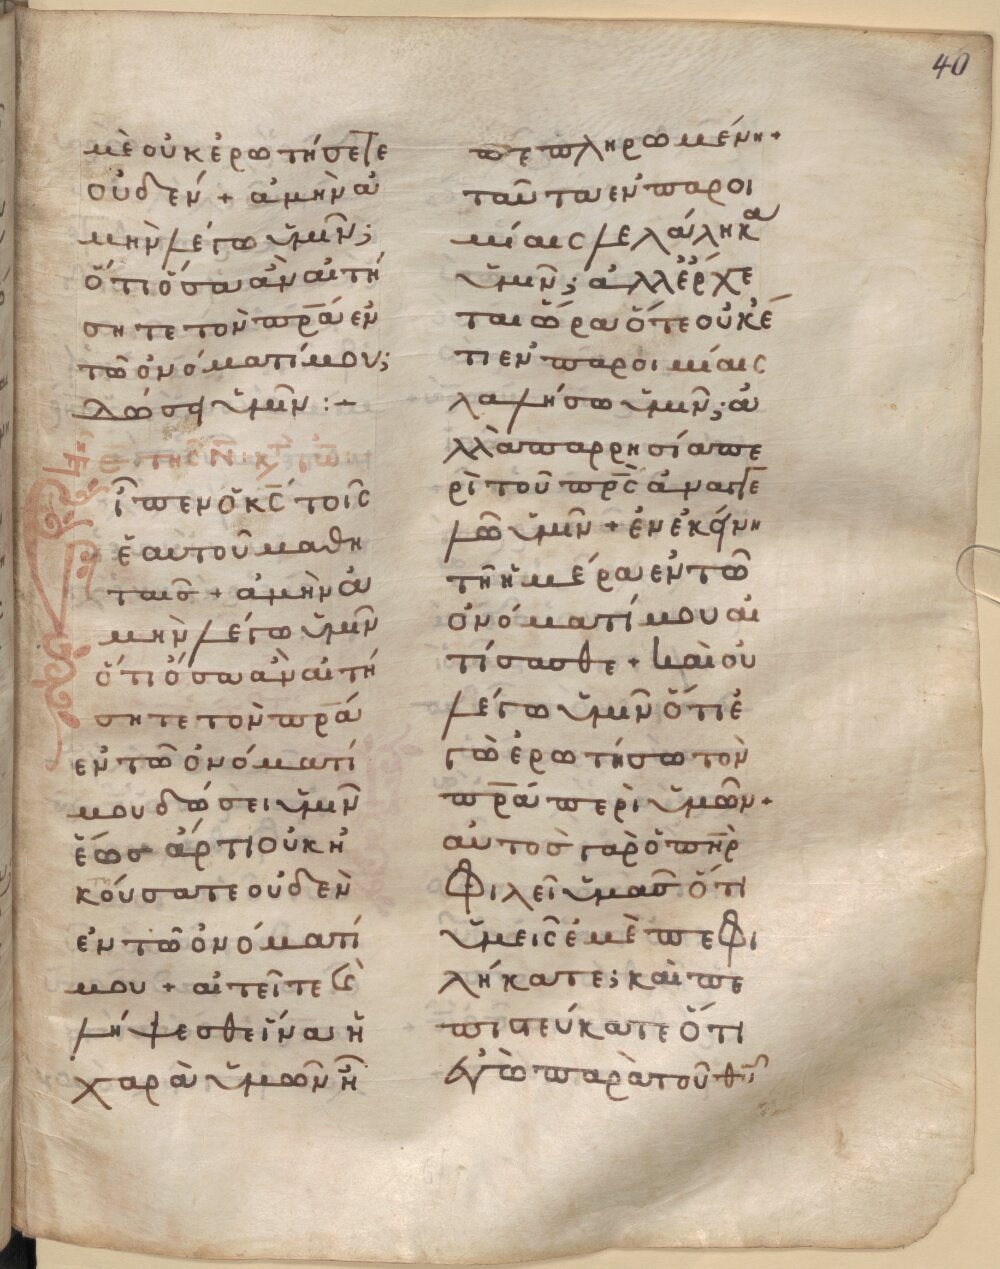 40
μὲ οὐκ ἐρωτήσετε
οὐδέν + ἀμὴν ἀ
μὴν λέγω ὑμῖν;
ὅτι ὅσα ἂν αἰτή
σητε τὸν πρ̅α ἐν
τῶ ὀνόματί μου;
δώσει ὑμῖν :-
εἶπεν ὁ κ̅ς τοῖς
ἑαυτοῦ μαθη
ταῖς + ἀμὴν ἀ
μὴν λέγω ὑμῖν
ὅτι ὅσα ἂν αἰτή
σητε τὸν πρ̅α
ἐν τῶ ὀνόματί
μου δώσει ὑμῖν
ἕως ἄρτι οὐκ ἠ
κούσατε οὐδὲν
ἐν τῶ ὀνόματί
μου + αἰτεῖτε καὶ
λήψεσθε ἵνα ἡ
χαρὰ ὑμῶν ἦ
πεπληρωμένη +
ταῦτα ἐν παροι
μίαις λελάληκα
ὑμῖν; ἀλλ ἔρχε
ται ὥρα ὅτε οὐκέ
τι ἐν παροιμίαις
λαλήσω ὑμῖν; ἀ
λλὰ παρρησία πε
ρὶ τοῦ πρ̅ς ἀναγγε
λῶ ὑμῖν + ἐν ἐκείνη
τῆ ἡμέρα ἐν τῶ
ὀνόματί μου αἰ
τίσασθε + καὶ οὐ
λέγω ὑμῖν ὅτι ἐ
γὼ ἐρωτήσω τὸν
πρ̅α περὶ ὑμῶν +
αὐτὸς γὰρ ὁ πη̅ρ
φιλεῖ ὑμᾶς ὅτι
ὑμεῖς ἐμὲ πεφι
λήκατε; καὶ πε
πιστεύκατε ὅτι
ἐγὼ παρὰ τοῦ θ̅υ